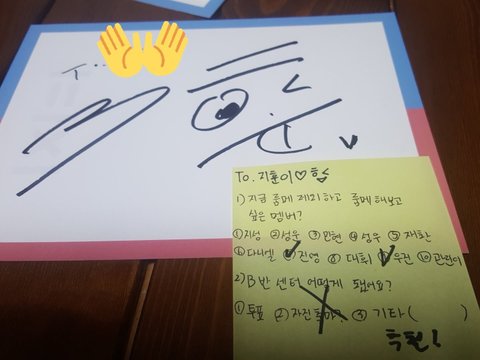 To. 지훈이♡
1) 지금 룸메 제외하고 룸메 해보고
싶은 멤버?
①지성 ②성운 ③민현 ④성우 ⑤재환
⑥다니엘 ⑦진영 ⑧대휘 ⑨우진 ⑩관린이
2) B반 센터 어떻게 됐어요?
①투표 ②자진출마? ③기타( )
추천!